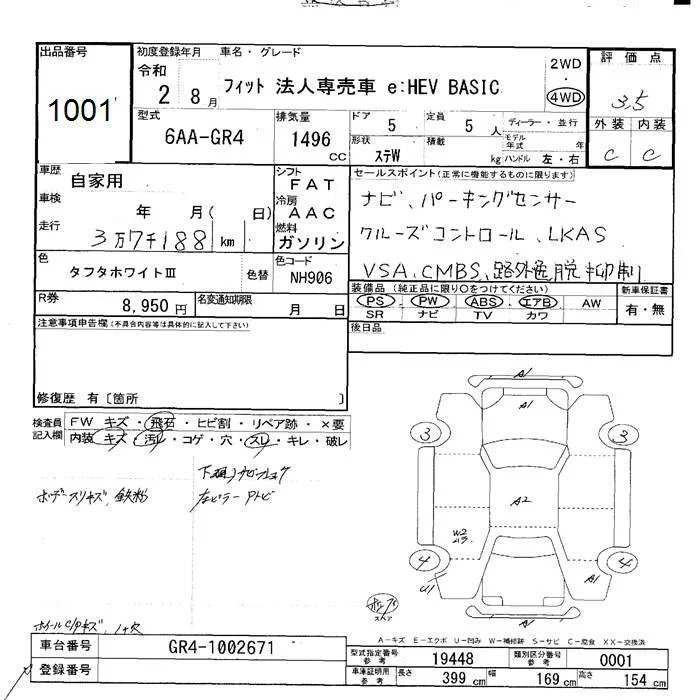 出品番号 初度登録年月 車名・グレード 評価点
1001 令和 2 8月 フィット 法人専売車 e:HEV BASIC 2WD・4WD 3.5
型式 排気量 ドア 5 定員 5人 ディーラー・並行 外装 内装
6AA-GR4 1496 CC 形状 ステW 積載 kg モデル年式 年 ハンドル 左・右 C C
車歴 自家用 シフト FAT セールスポイント(正常に機能するものに限ります)
車検 年 月( 日) 冷房 AAC ナビ、パーキングセンサー
走行 3万7千188km 燃料 ガソリン クルーズコントロール、LKAS
色 タフタホワイトⅢ 色替 色コード NH906 VSA、CMBS、路外逸脱抑制
R券 8,950円 名変通知期限 月 日 装備品(純正品に限り○をつけてください) 新車保証書
PS PW ABS エアB AW 有・無
SR ナビ TV カワ
注意事項申告欄(不具合内容等は具体的に記入して下さい) 後日品
修復歴 有〔箇所 〕
検査員記入欄 FW キズ・飛石・ヒビ割・リペア跡・×要
内装 キズ・汚レ・コゲ・穴・スレ・キレ・破レ
ボデースリキズ、鉄粉
A1
A1
3 3
A2
W2
4 4
U1 A1
A1
スペア
A-キズ E-エクボ U-凹み W-補修跡 S-サビ C-腐食 XX-交換済
車台番号 GR4-1002671 型式指定番号 参考 19448 類別区分番号 参考 0001
登録番号 車庫証明用 参考 長さ 399cm 幅 169cm 高さ 154cm